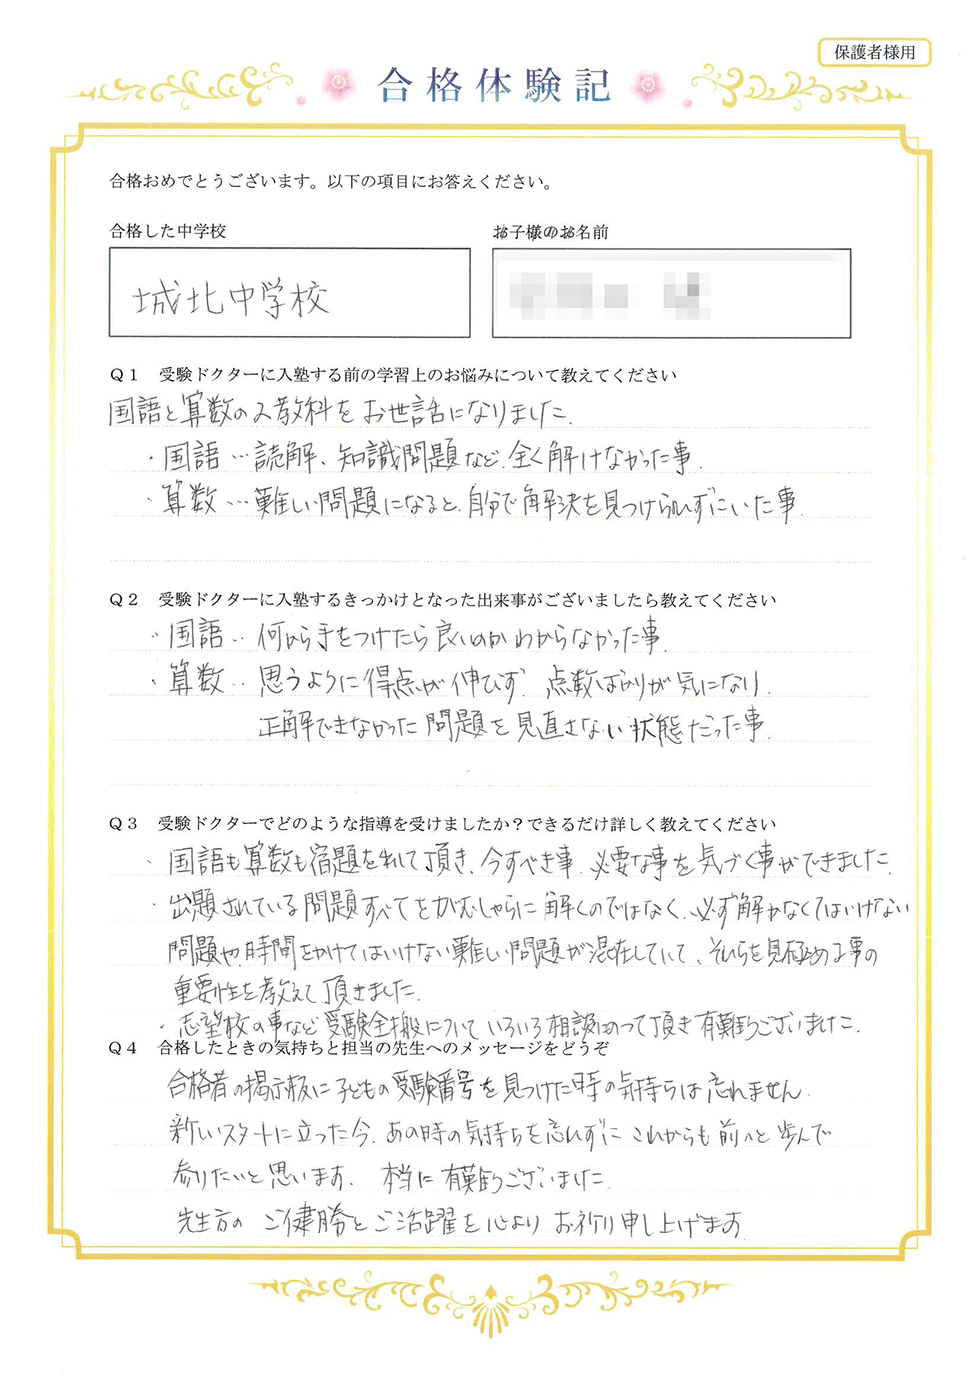 保護者様用
合格体験記
合格おめでとうございます。以下の項目にお答えください。
合格した中学校
お子様のお名前
城北中学校
Q1 受験ドクターに入塾する前の学習上のお悩みについて教えてください
国語と算数の2教科をお世話になりました。
・国語…読解、知識問題など、全く解けなかった事。
・算数…難しい問題になると、自分で解決を見つけられずにいた事。
Q2 受験ドクターに入塾するきっかけとなった出来事がございましたら教えてください
・国語‥何から手をつけたら良いのかわからなかった事。
・算数‥思うように得点が伸びず、点数ばかりが気になり、
正解できなかった問題を見直さない状態だった事。
Q3 受験ドクターでどのような指導を受けましたか？できるだけ詳しく教えてください
・国語も算数も宿題を入れて頂き、今すべき事、必要な事を気づく事ができました。
・出題されている問題すべてをがむしゃらに解くのではなく、必ず解かなくてはいけない
問題や、時間をかけてはいけない難しい問題が混在していて、それらを見極める事の
重要性を教えて頂きました。
・志望校の事など受験全般についていろいろ相談にのって頂き有難うございました。
Q4 合格したときの気持ちと担当の先生へのメッセージをどうぞ
合格者の掲示板に子どもの受験番号を見つけた時の気持ちは忘れません。
新しいスタートに立った今、あの時の気持ちを忘れずにこれからも前へと歩んで
参りたいと思います。本当に有難うございました。
先生方のご健勝とご活躍を心よりお祈り申し上げます